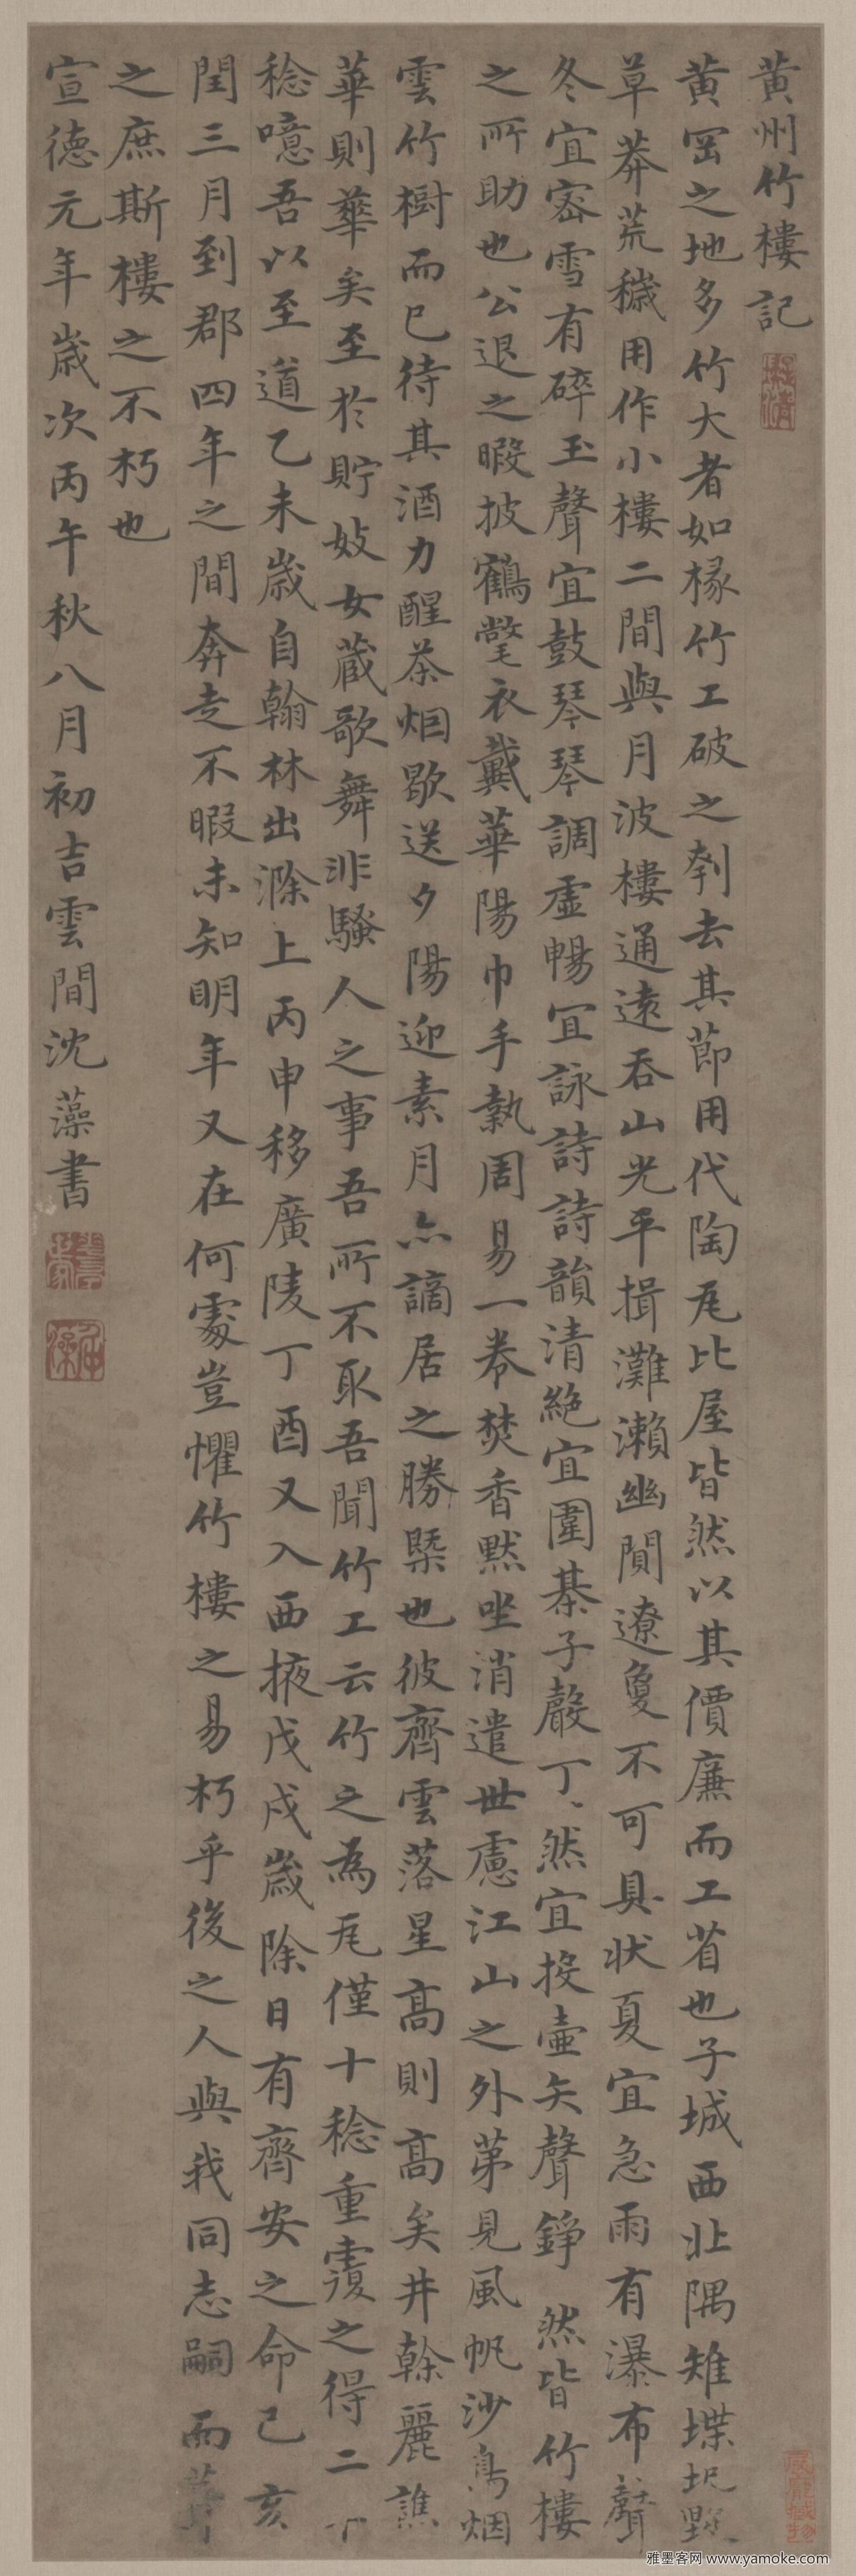 黄州竹樓記
黄岡之地多竹大者如椽竹工破之刳去其節用代陶瓦比屋皆然以其價廉而工省也子城西北隅雉堞圮毀
草莽荒穢用作小樓二間與月波樓通遠吞山光平揖灘瀨幽闃遼敻不可具狀夏宜急雨有瀑布聲
冬宜密雪有碎玉聲宜鼓琴琴調虛暢宜詠詩詩韻清絶宜圍棊子聲丁丶然宜投壺矢聲錚 然皆竹樓
之所助也公退之暇披鶴氅衣戴華陽巾手執周易一卷焚香默坐消遣世慮江山之外第見風帆沙鳥烟
雲竹樹而已待其酒力醒茶烟歇送夕陽迎素月亦謫居之勝槩也彼齊雲落星高則高矣井榦麗譙
華則華矣至於貯妓女藏歌舞非騷人之事吾所不取吾聞竹工云竹之為瓦僅十稔重覆之得二十
稔噫吾以至道乙未歲自翰林出滁上丙申移廣陵丁酉又入西掖戊戌歲除日有齊安之命己亥
閏三月到郡四年之間奔走不暇未知明年又在何處豈懼竹樓之易朽乎後之人與我同志嗣而葺
之庶斯樓之不朽也
宣德元年歲次丙午秋八月初吉雲間沈藻書
雅墨客网 www.yamoke.com